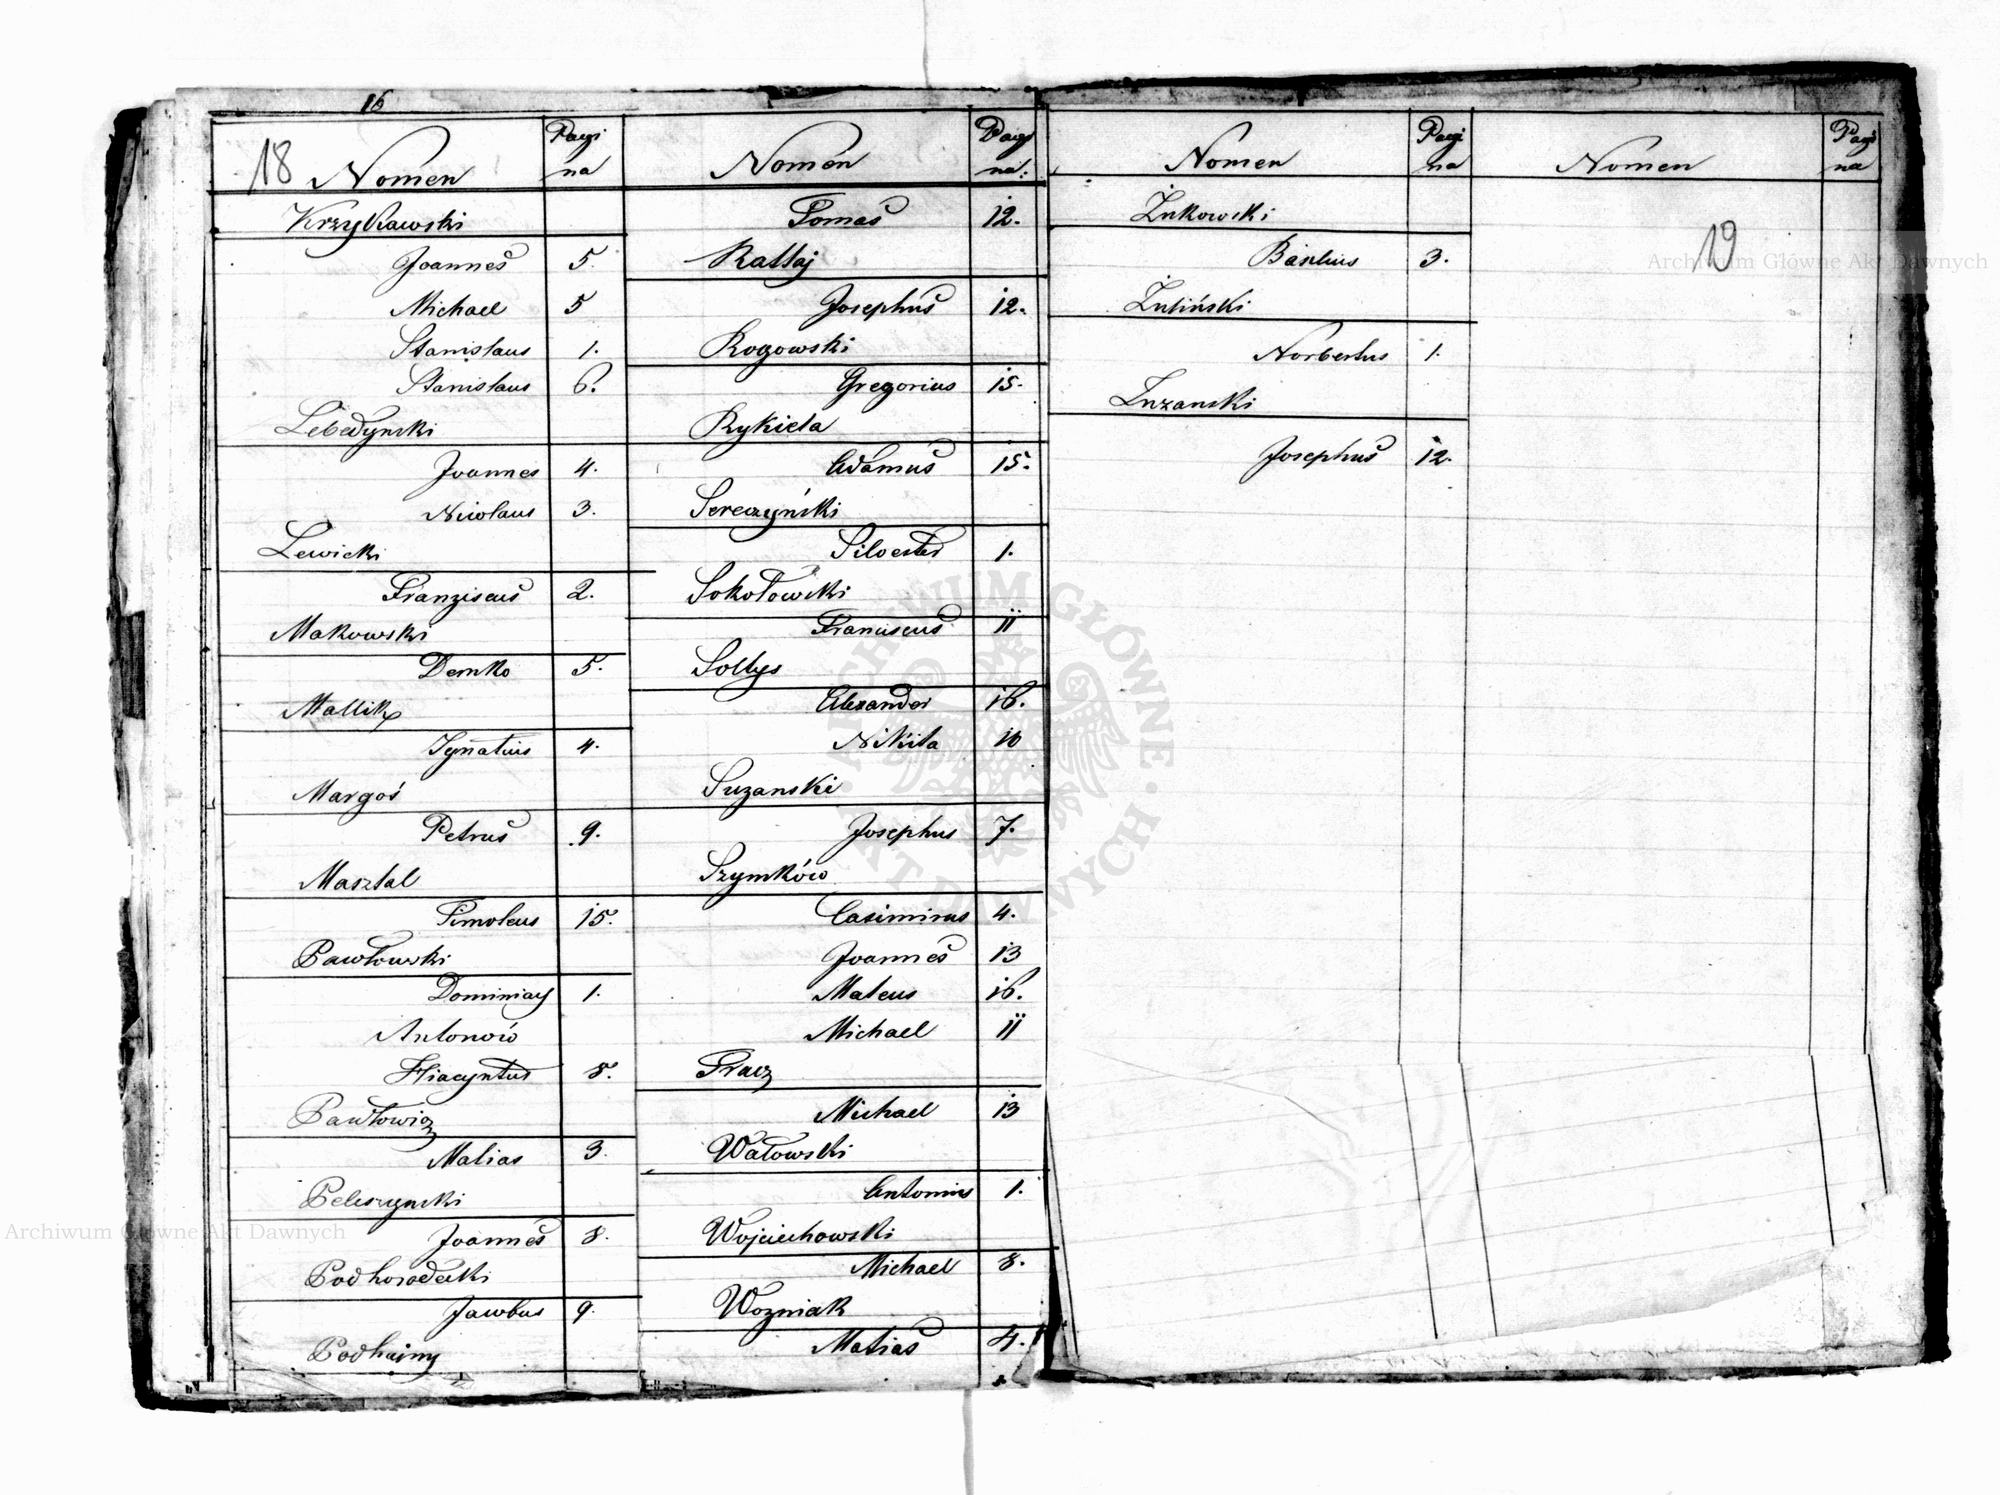 16
18
Nomen
Pagi
na
Krzyžawski
Joannes 5.
Michael 5
Stanislaus 1.
Stanislaus 6.
Lebedynski
Joannes 4.
Nicolaus 3.
Lewicki
Franziscus 2.
Makowski
Demko 5.
Mallik
Ignatius 4.
Margoś
Petrus 9.
Masztal
Timoteus 15.
Pawłowski
Dominicus 1.
Antonów
Hiacyntus 8.
Pawłowicz
Matias 3.
Peleszynski
Joannes 8.
Podhorodecki
Jacobus 9.
Podhainy
Nomen
Pagi
na.
Tomas 12.
Rattaj
Josephus 12.
Rogowski
Gregorius 15.
Rykieta
Adamus 15.
Sereczyński
Silvester 1.
Sokołowski
Franciscus 11
Soltys
Alexander 16.
Nikita 10
Suzanski
Josephus 7.
Szymków
Casimirus 4.
Joannes 13
Mateus 16.
Michael 11
Tracz
Michael 13
Wałowski
Antonius 1.
Wojciechowski
Michael 8.
Wozniak
Matias 4.
Nomen
Pagi
na
Żukowski
Basilius 3.
Żuliński
Norbertus 1.
Luzanski
Josephus 12.
Nomen
Pagi
na
19
Archiwum Główne Akt Dawnych
Archiwum Główne Akt Dawnych
ARCHIWUM GŁÓWNE AKT DAWNYCH